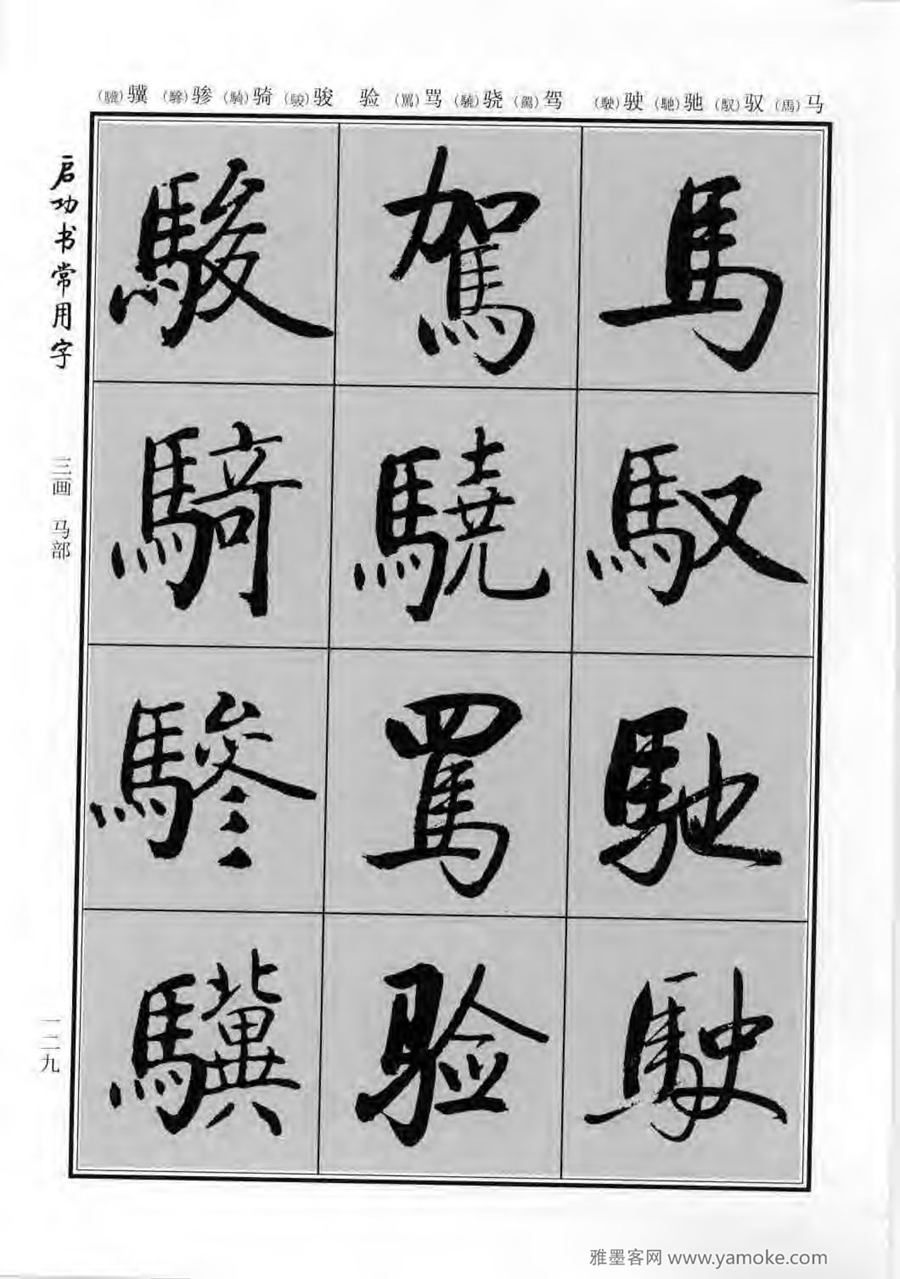 马(馬) 驭(馭) 驰(馳) 驶(駛) 驾(駕) 骁(驍) 骂(罵) 验 骏(駿) 骑(騎) 骖(驂) 骥(驥)
馬
馭
馳
駛
駕
驍
罵
验
駿
騎
驂
驥
启功书常用字
三画 马部
一二九
雅墨客网 www.yamoke.com